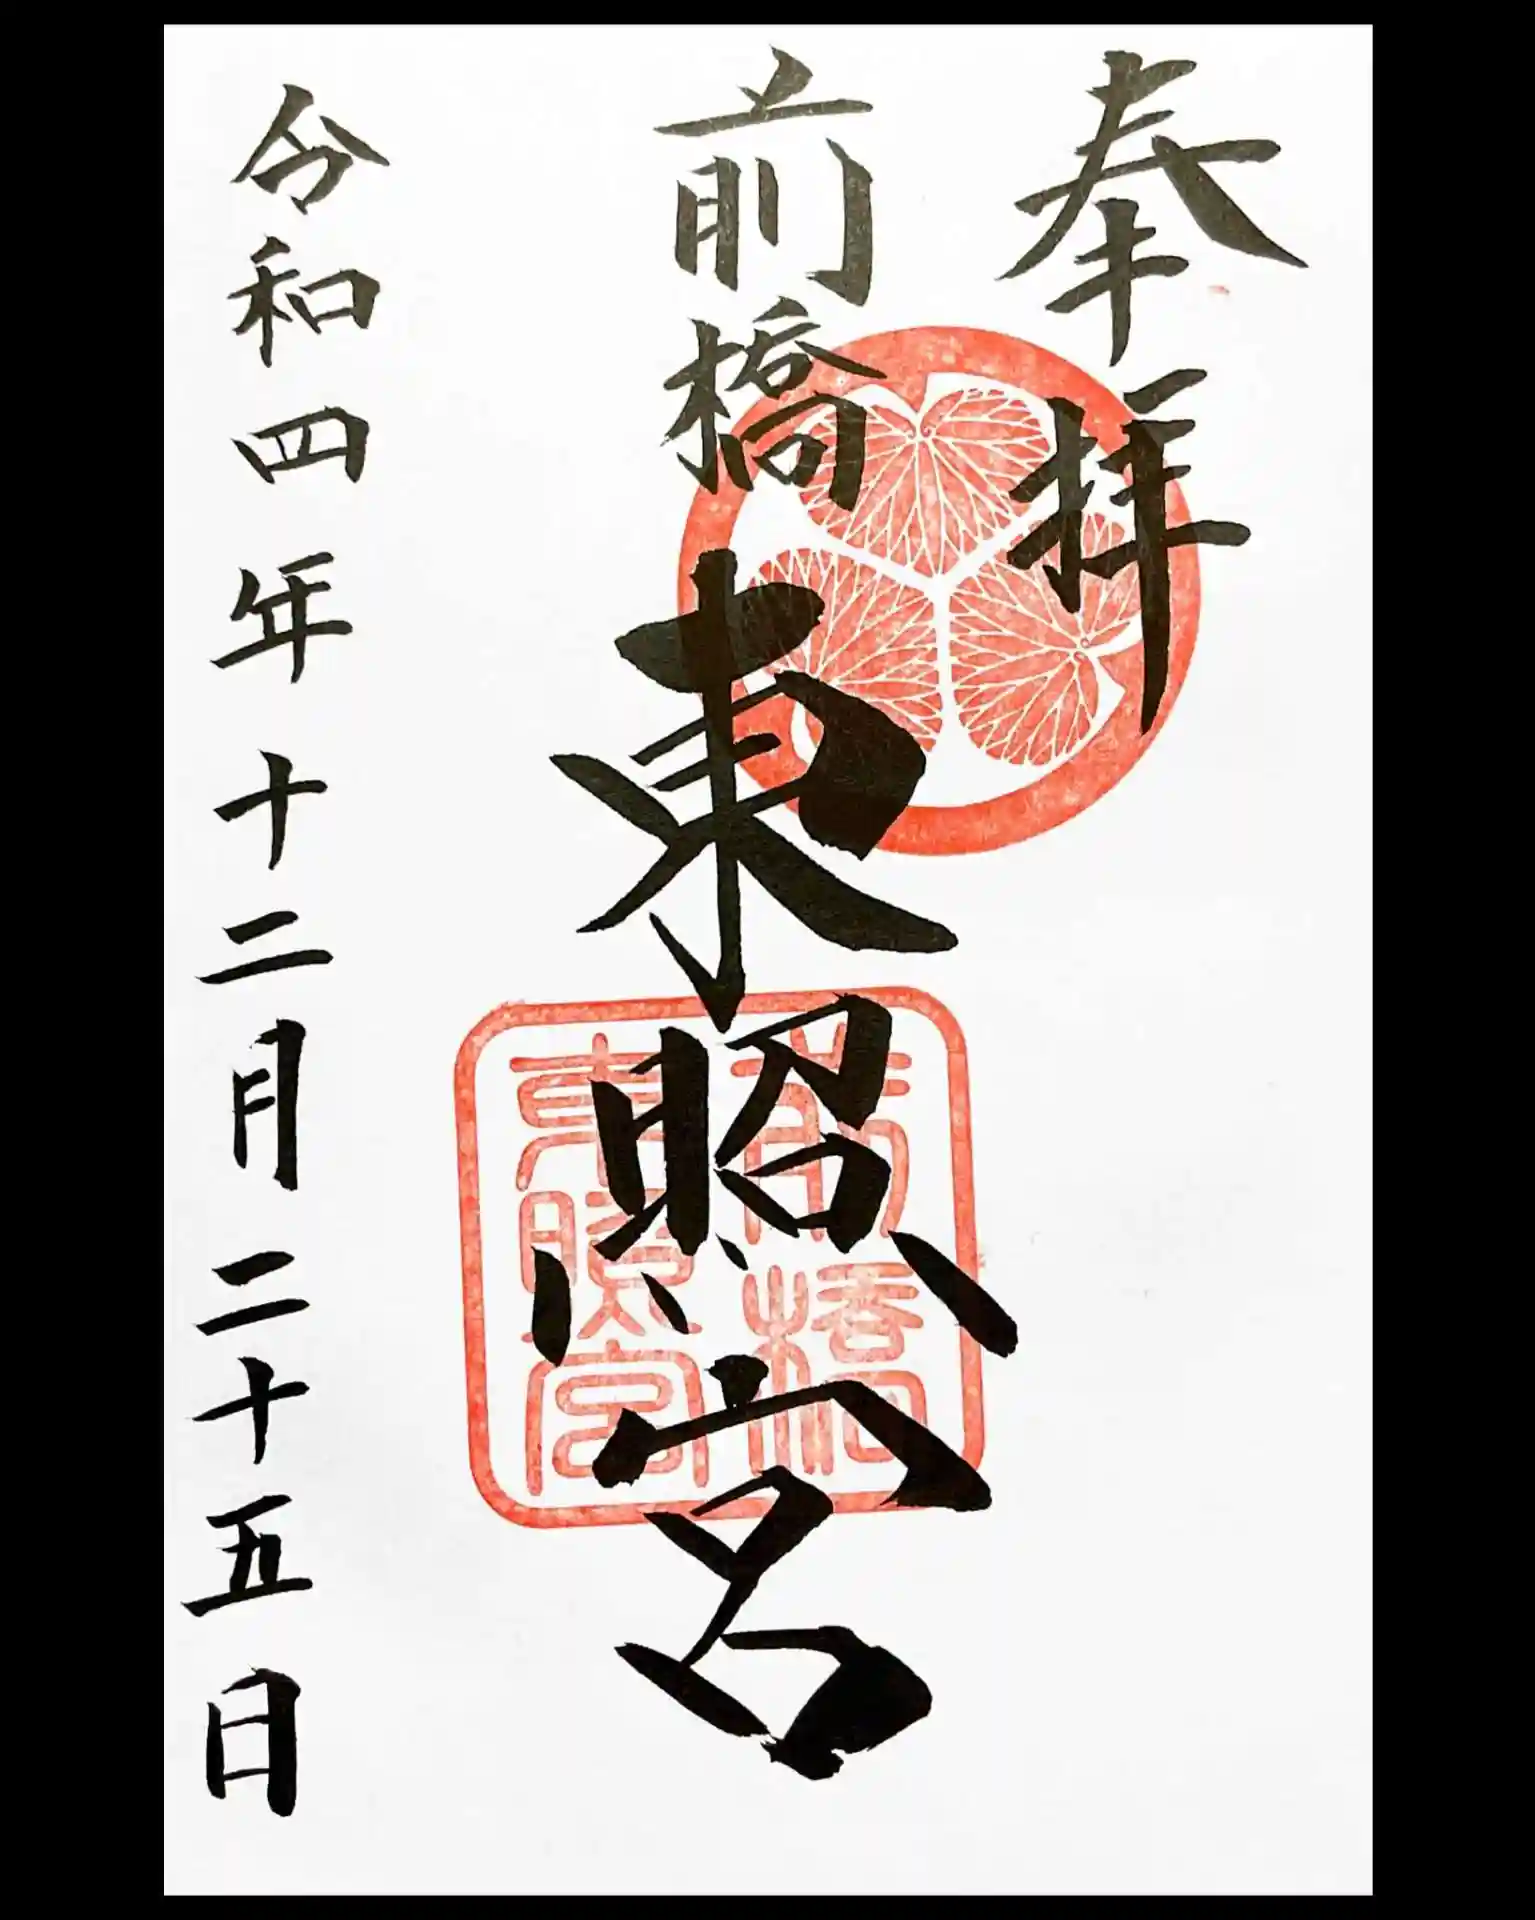 奉拝
前橋東照宮
令和四年十二月二十五日
前橋
東照宮